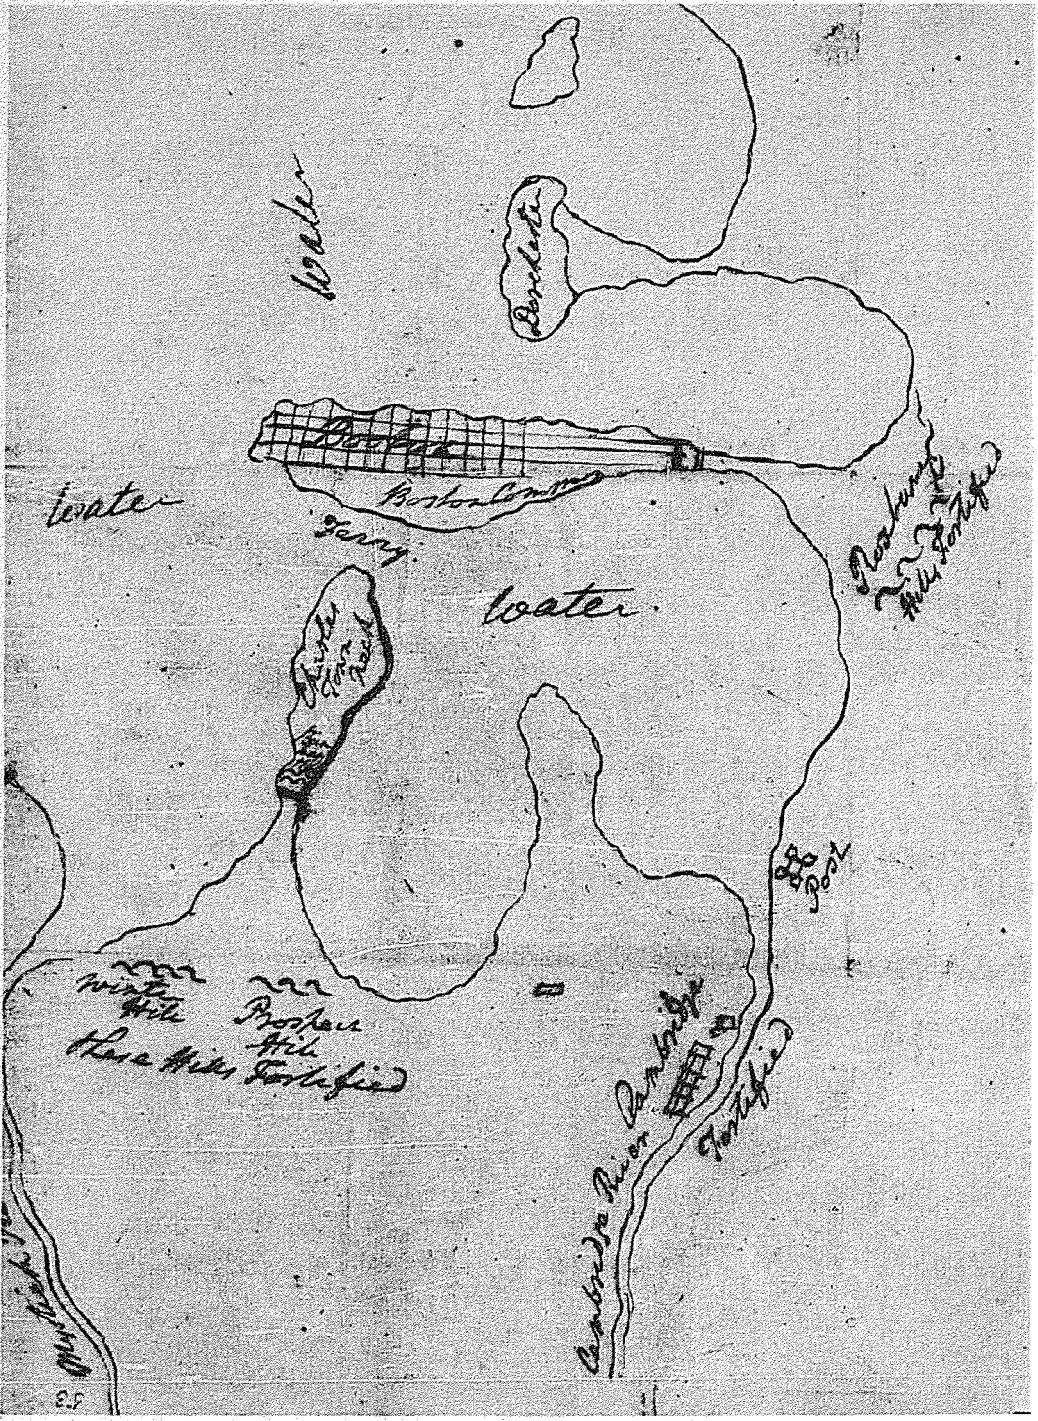 Water
Dorchester
Boston
Boston Common
Water
Ferry.
Roxbury
Hills Fortified
Water.
Charles
Town
Neck
Post
Winter
Hill
Prospect
Hill
these Hills Fortified
Cambridge
Fortified
Cambridge River
Mystick